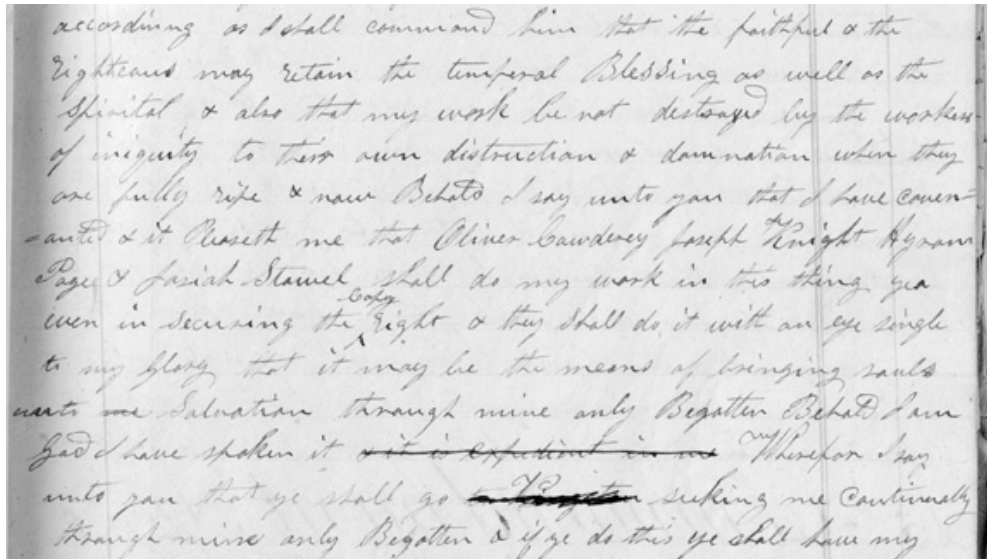 accordiing as I shall command him that the faithful & the
Righteous may retain the temperal Blessing as well as the
Spirital & also that my work be not destroyed by the workers
of iniquity to their own distruction & damnation when they
are fully ripe & now Behold I say unto you that I have coven=
=anted & it Pleaseth me that Oliver Cowderey Joseph Knight Hyram
Page & Josiah Stowel shall do my work in this thing yea
Copy
even in securing the Right & they shall do it with an eye single
to my Glory that it may be the means of bringing souls
unto me Salvation through mine only Begotten Behold I am
God I have spoken it & it is expedient in me Wherefor I say
unto you that ye shall go to Kingston seeking me continually
through mine only Begotten & if ye do this ye shall have my